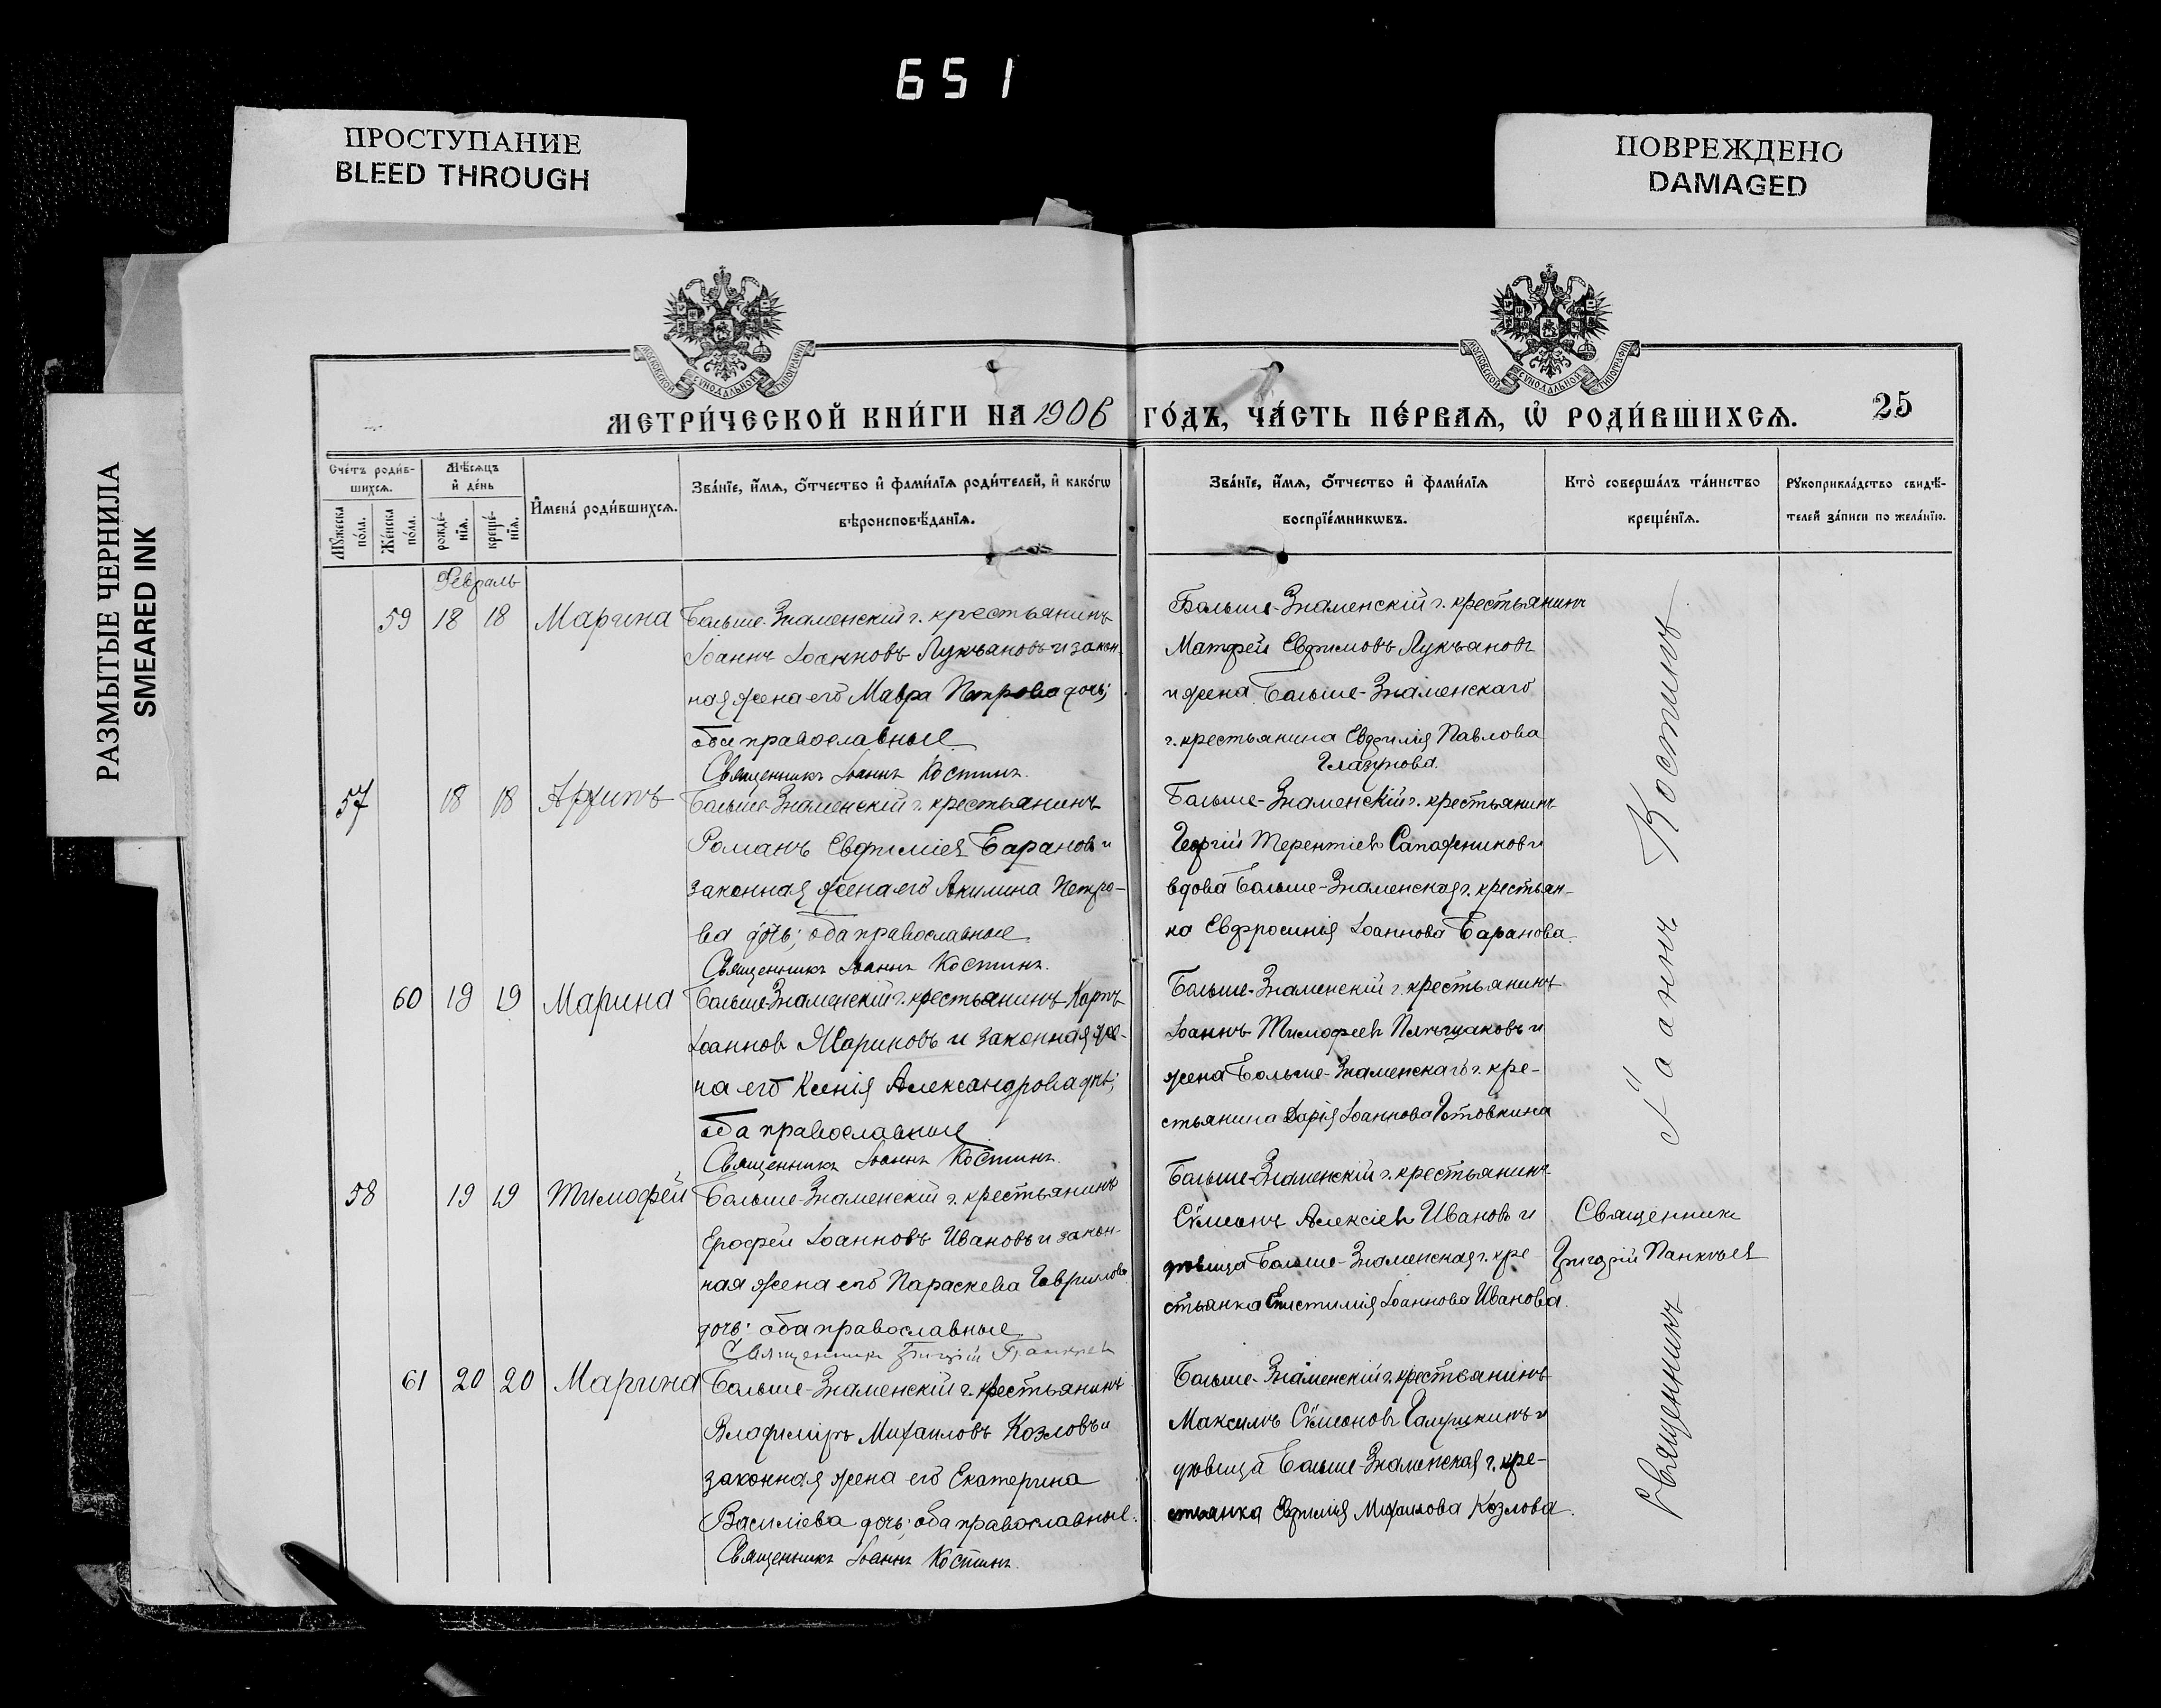 651
ПРОСТУПАНИЕ
BLEED THROUGH
ПОВРЕЖДЕНО
DAMAGED
РАЗМЫТЫЕ ЧЕРНИЛА
SMEARED INK
МОСКОВСКОЙ СѴНОДАЛЬНОЙ ТИПОГРАФІИ
МОСКОВСКОЙ СѴНОДАЛЬНОЙ ТИПОГРАФІИ
МЕТРИ́ЧЕСКОЙ КНИ́ГИ НА 1906 ГО́ДЪ, ЧА́СТЬ ПЕ́РВАѦ, Ѡ҆ РОДИ́ВШИХСѦ.
25
Сче́тъ роди́в-
шихсѧ.
Мѣ́сѧцъ
и҆ де́нь
Мꙋ́жеска
по́ла.
Же́нска
по́ла.
рожде́-
нїѧ.
креще́-
нїѧ.
И҆мена̀ роди́вшихсѧ.
Зва́нїе, и҆́мѧ, ѻ҆́тчество и҆ фами́лїѧ роди́телей, и҆ како́гѡ
вѣроисповѣ́данїѧ.
Зва́нїе, и҆́мѧ, ѻ҆́тчество и҆ фами́лїѧ
воспрїе́мникѡвъ.
Кто̀ соверша́лъ та́инство
креще́нїѧ.
Рꙋкоприкла́дство свидѣ́-
телей за́писи по жела́нїю.
Февраль
59 18 18 Марина
Больше-Знаменскій г. крестьянинъ
Іоаннъ Іоанновъ Лукьяновъ и закон-
ная жена его Мавра Петрова дочь;
оба православные
Священникъ Іоаннъ Костинъ.
Больше-Знаменскій г. крестьянинъ
Матфей Евфимовъ Лукьяновъ
и жена Больше-Знаменскаго
г. крестьянина Евфимія Павлова
Глазунова.
57 18 18 Архипъ
Больше-Знаменскій г. крестьянинъ
Романъ Евфиміев Баранов и
законная жена его Акилина Петро-
ва дочь; оба православные
Священникъ Іоаннъ Костинъ.
Больше-Знаменскій г. крестьянинъ
Георгій Терентіев Сапожников и
вдова Больше-Знаменская г. крестьян-
ка Евфросинія Іоаннова Баранова.
60 19 19 Марина
Больше-Знаменскій г. крестьянинъ Карпъ
Іоаннов Мариновъ и законная же-
на его Ксенія Александрова дчь;
оба православные
Священникъ Іоаннъ Костинъ.
Больше-Знаменскій г. крестьянинъ
Іоаннъ Тимофеев и
жена Больше-Знаменскаго г. кре-
стьянина Дарія Іоаннова Готовкина
58 19 19 Тимофей
Больше-Знаменскій г. крестьянинъ
Ерофей Іоанновъ Ивановъ и закон-
ная жена его Параскева Гаврилова
дочь; оба православные
Священникъ Григорій Панкѣев
Больше-Знаменскій г. крестьянинъ
Сѵмеонъ Алексіев Иванов и
дѣвица Больше-Знаменская г. кре-
стьянка Епистимія Іоаннова Иванова.
Священникъ
Григорій Панкѣев
61 20 20 Марина
Больше-Знаменскій г. крестьянинъ
Владиміръ Михаиловъ Козловъ и
законная жена его Екатерина
Василіева дочь; оба православные.
Священникъ Іоаннъ Костинъ.
Больше-Знаменскій г. крестьянинъ
Максимъ Сѵмеоновъ Галушкинъ и
дѣвица Больше-Знаменская г. кре-
стьянка Евфимія Михаилова Козлова.
Священникъ Іоаннъ Костинъ